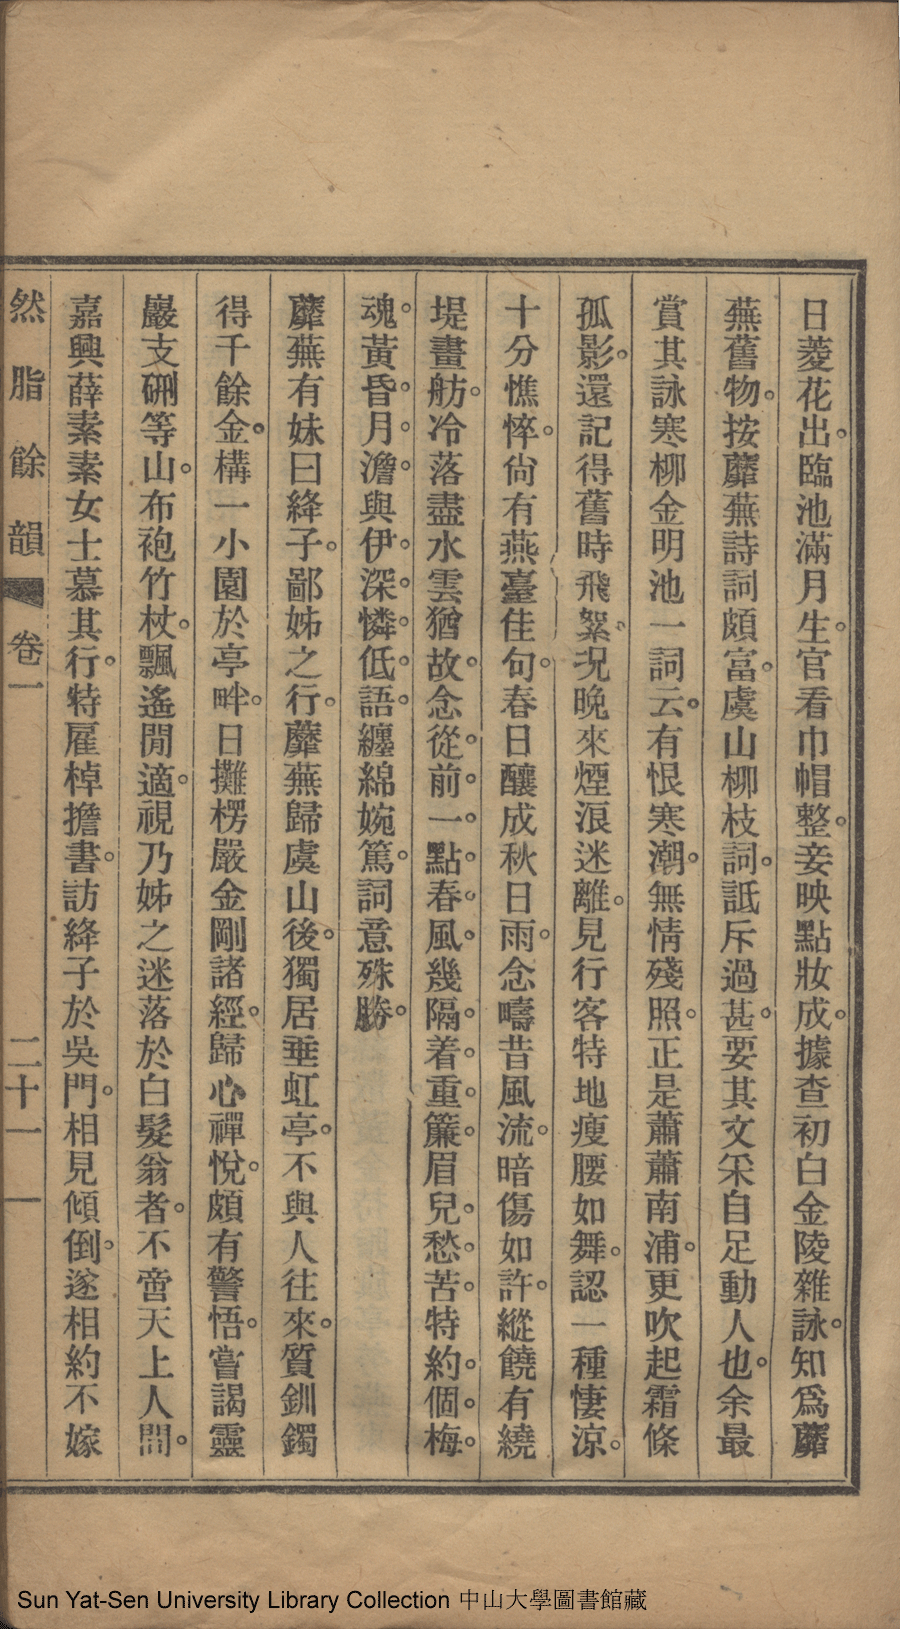 日菱花出。臨池滿月生。官看巾帽整。妾映點妝成。據查初白金陵雜詠。知爲蘼
蕪舊物。按蘼蕪詩詞頗富。虞山柳枝詞。詆斥過甚。要其文采自足動人也。余最
賞其詠寒柳金明池一詞云。有恨寒潮。無情殘照。正是蕭蕭南浦。更吹起霜條
孤影。還記得舊時飛絮。况晚來煙浪迷離。見行客特地瘦腰如舞。認一種悽涼。
十分憔悴。尙有燕臺佳句。春日釀成秋日雨。念疇昔風流。暗傷如許。縱饒有繞
堤畫舫。冷落盡水雲猶故。念從。前。一。點。春。風。幾隔。着。重。簾。眉兒。愁。苦。特約。個。梅。
魂。黃昏。月。澹。與伊。深。憐。低。語。纏綿婉篤。詞意殊勝。
蘼蕪有妹曰絳子。鄙姊之行。蘼蕪歸虞山後。獨居垂虹亭。不與人往來。質釧鐲
得千餘金。構一小園於亭畔。日攤楞嚴金剛諸經。歸心禪悅。頗有警悟。嘗謁靈
巖支硎等山。布袍竹杖。飄遙閒適。視乃姊之迷落於白髮翁者。不啻天上人間。
嘉興薛素素女士慕其行。特雇棹擔書。訪絳子於吳門。相見傾倒。遂相約不嫁
然脂餘韻 卷一 二十一 一
Sun Yat-Sen University Library Collection 中山大學圖書館藏